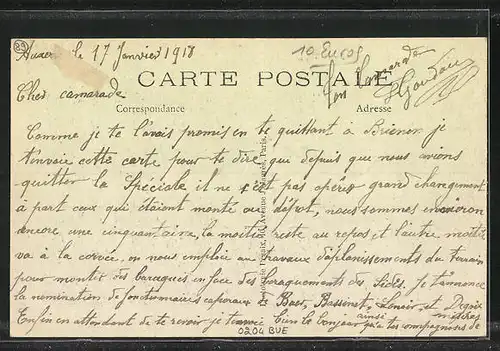 29
Auxerre le 17 Janvier 1918
10 Euros
CARTE POSTALE
Ton Camarade
Cher camarade
Correspondance
Adresse
Comme je te l'avais promis en te quittant à Brienon je
t'envoie cette carte pour te dire que depuis que nous avions
quitter la Spéciale il ne s'est pas opérer grand changement
à part ceux qui étaient monté au dépot, nous sommes environ
encore une cinquantaine, la moitié reste au repos et l'autre moitié
va à la corvée, on nous emploie au travaux d'aplanissements du terrain
pour monter des baraques en face des baraquements des
la nomination de fonctionnaires caporaux Bassinet, Lenoir et
Enfin en attendant de te revoir je t'envoie bien le bonjour ainsi qu'à tes compagnons de misères
0204 BUE